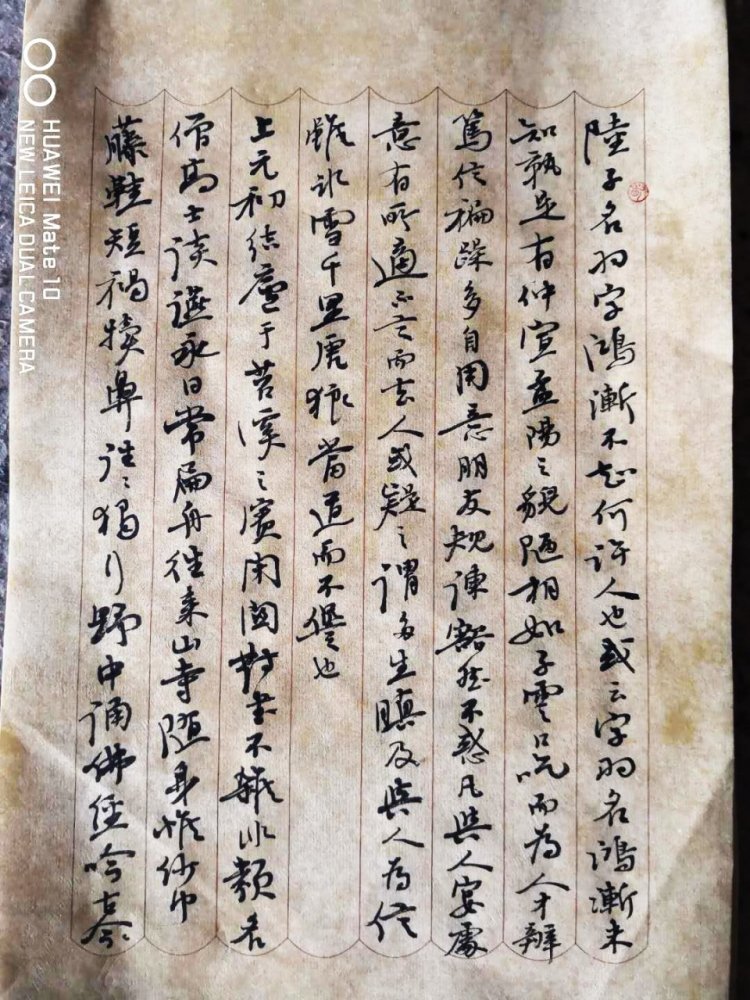 陸子名羽字鴻漸不知何許人也或云字羽名鴻漸未
知孰是有仲宣孟陽之貌陋相如子雲口吃而為人才辯
篤信褊躁多自用意朋友規諫豁然不惑凡與人宴處
意有所適不言而去人或疑之謂多生瞋及與人為信
雖冰雪千里虎狼當道而不諐也
上元初結廬于苕溪之濱閉關對書不雜非類名
僧高士談讌永日常扁舟往來山寺隨身惟紗巾
藤鞋短褐犢鼻往往獨行野中誦佛經吟
HUAWEI Mate 10
NEW LEICA DUAL CAMERA